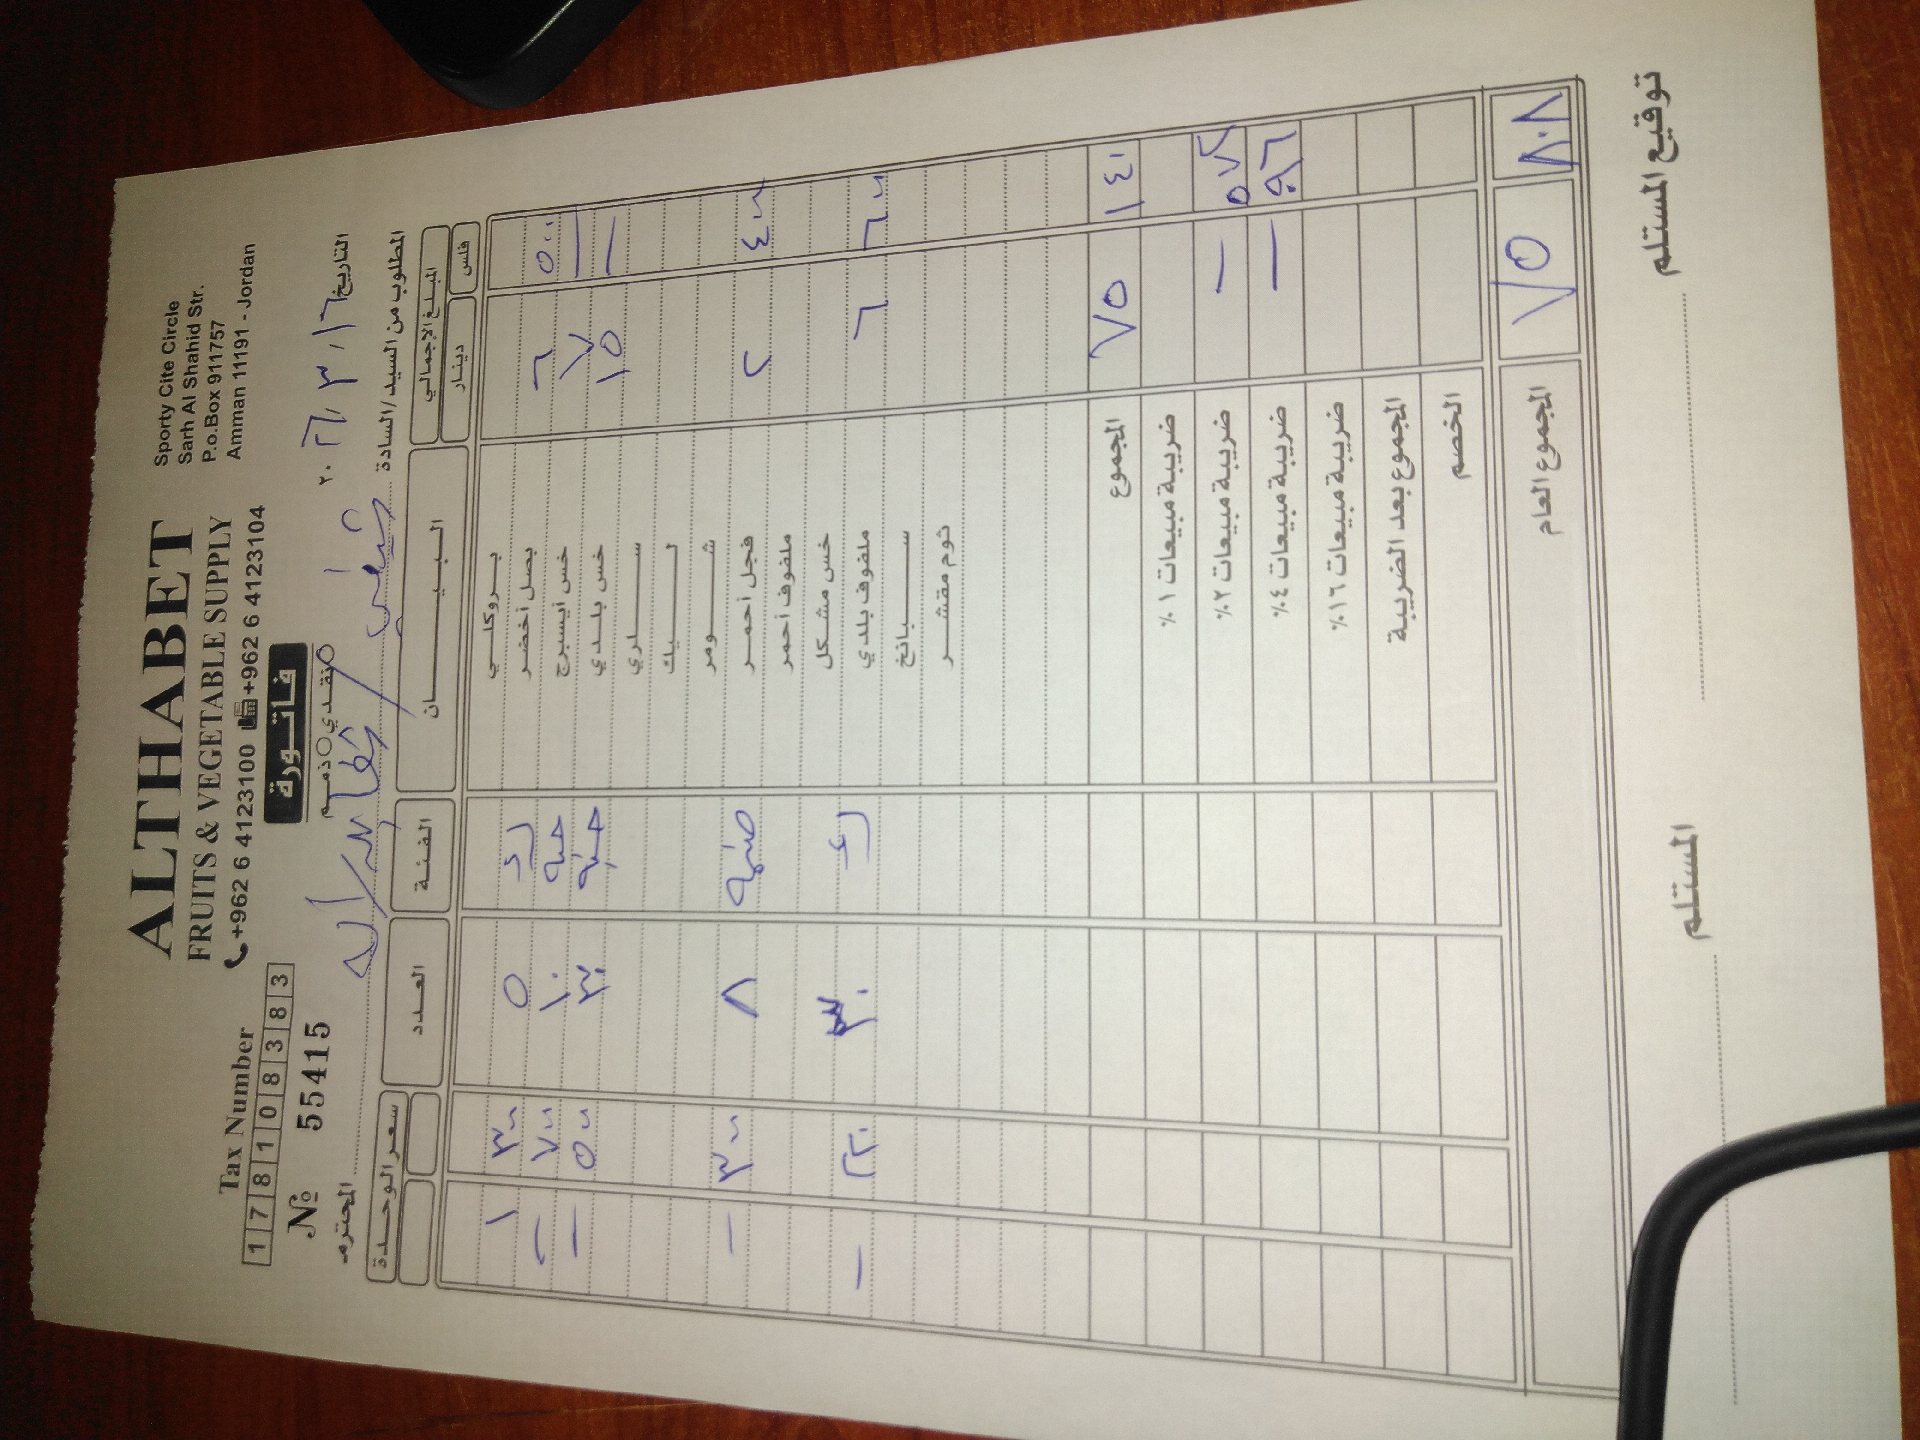 ALTHABET
FRUITS & VEGETABLE SUPPLY
+962 6 4123100 +962 6 4123104
Sporty Cite Circle
Sarh Al Shahid Str.
P.o.Box 911757
Amman 11191 - Jordan
Tax Number
1 7 8 1 0 8 3 8 3
فاتورة
نقدي ذمم
№ 55415
التاريخ ١٦ / ٣ / ٢٠٢٦
المطلوب من السيد/السادة
المحترم
المبلغ الإجمالي البيـــــان الفئة العدد سعر الوحدة
فلس دينار
بروكلي
٥٠٠ ٦ بصل أخضر ٥ ٣٠٠ ١
— ٧ خس آيسبرج حبه ١٠ ٧٠٠ —
— ١٥ خس بلدي حبه ٣٠ ٥٠٠ —
ســـلري
لـــيك
شــومر
٤٠٠ ٢ فجل أحمر ضمه ٨ ٣٠٠ —
ملفوف أحمر
خس مشكل
٦٠٠ ٦ ملفوف بلدي ٣٠ ٢٢٠ —
ســبانخ
ثوم مقشر
١٤١ ٧٥ المجموع
ضريبة مبيعات ١٪
٥٧٢ — ضريبة مبيعات ٢٪
٠٩٦ — ضريبة مبيعات ٤٪
ضريبة مبيعات ١٦٪
المجموع بعد الضريبة
الخصم
٨٠٨ ٧٥ المجموع العام
توقيع المستلم
المستلم